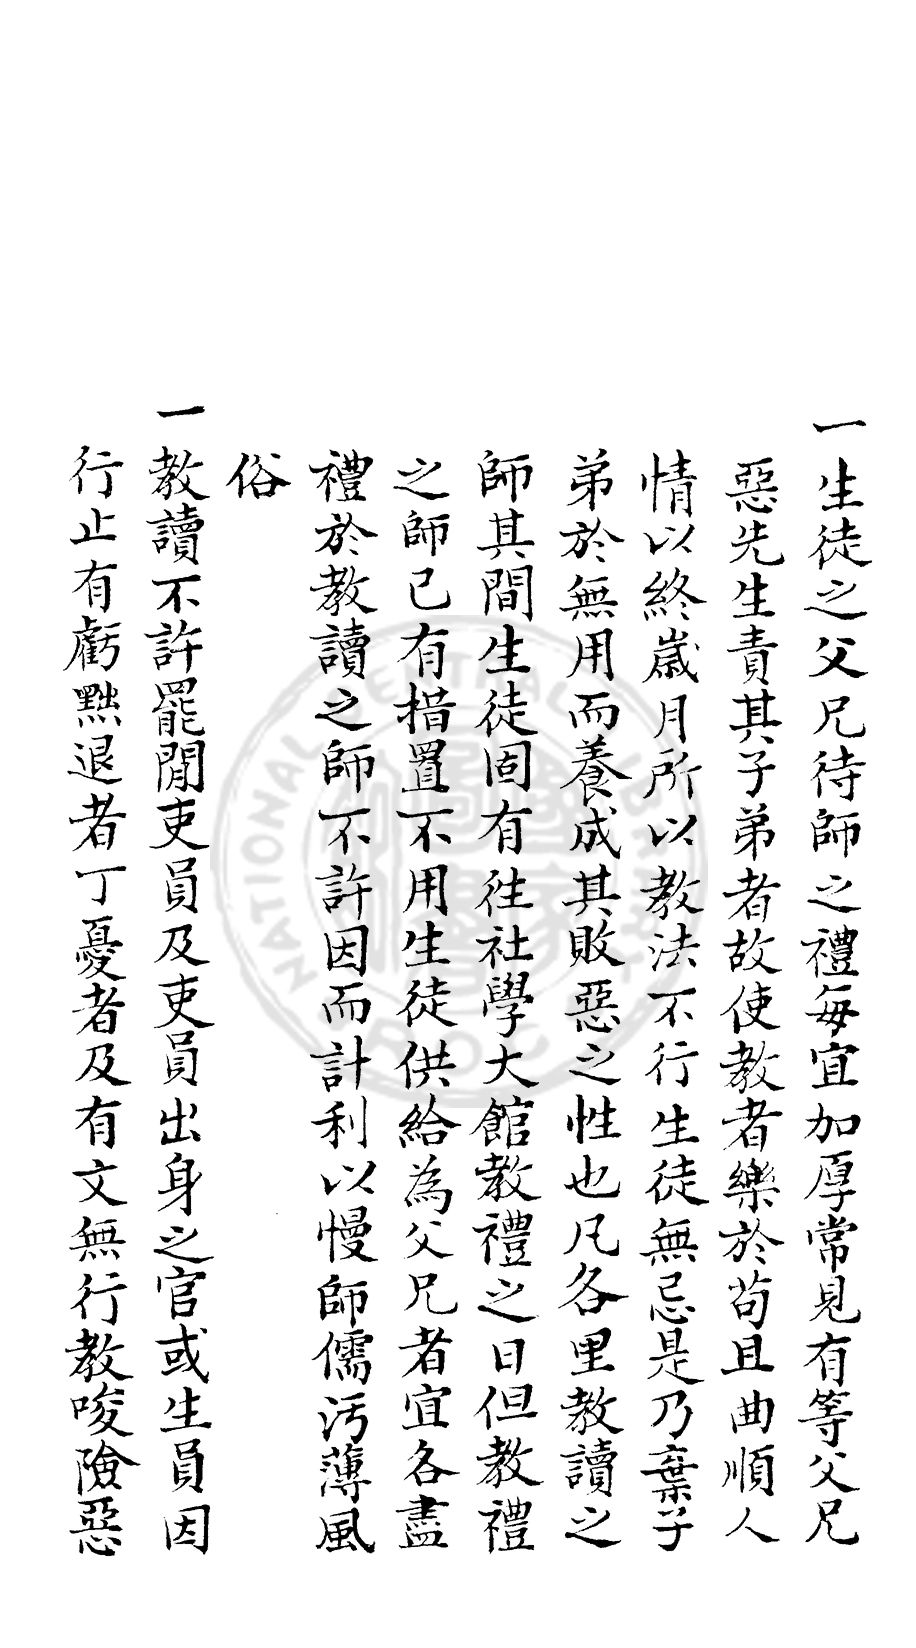 一生徒之父兄待師之禮每宜加厚常見有等父兄
惡先生責其子弟者故使教者樂於苟且曲順人
情以終歲月所以教法不行生徒無忌是乃棄子
弟於無用而養成其敗惡之性也凡各里教讀之
師其間生徒固有往社學大館教禮之日但教禮
之師已有措置不用生徒供給為父兄者宜各盡
禮於教讀之師不許因而計利以慢師儒污薄風
俗
一教讀不許罷閒吏員及吏員出身之官或生員因
行止有虧黜退者丁憂者及有文無行教唆險惡
NATIONAL CENTRAL LIBRARY R.O.C.